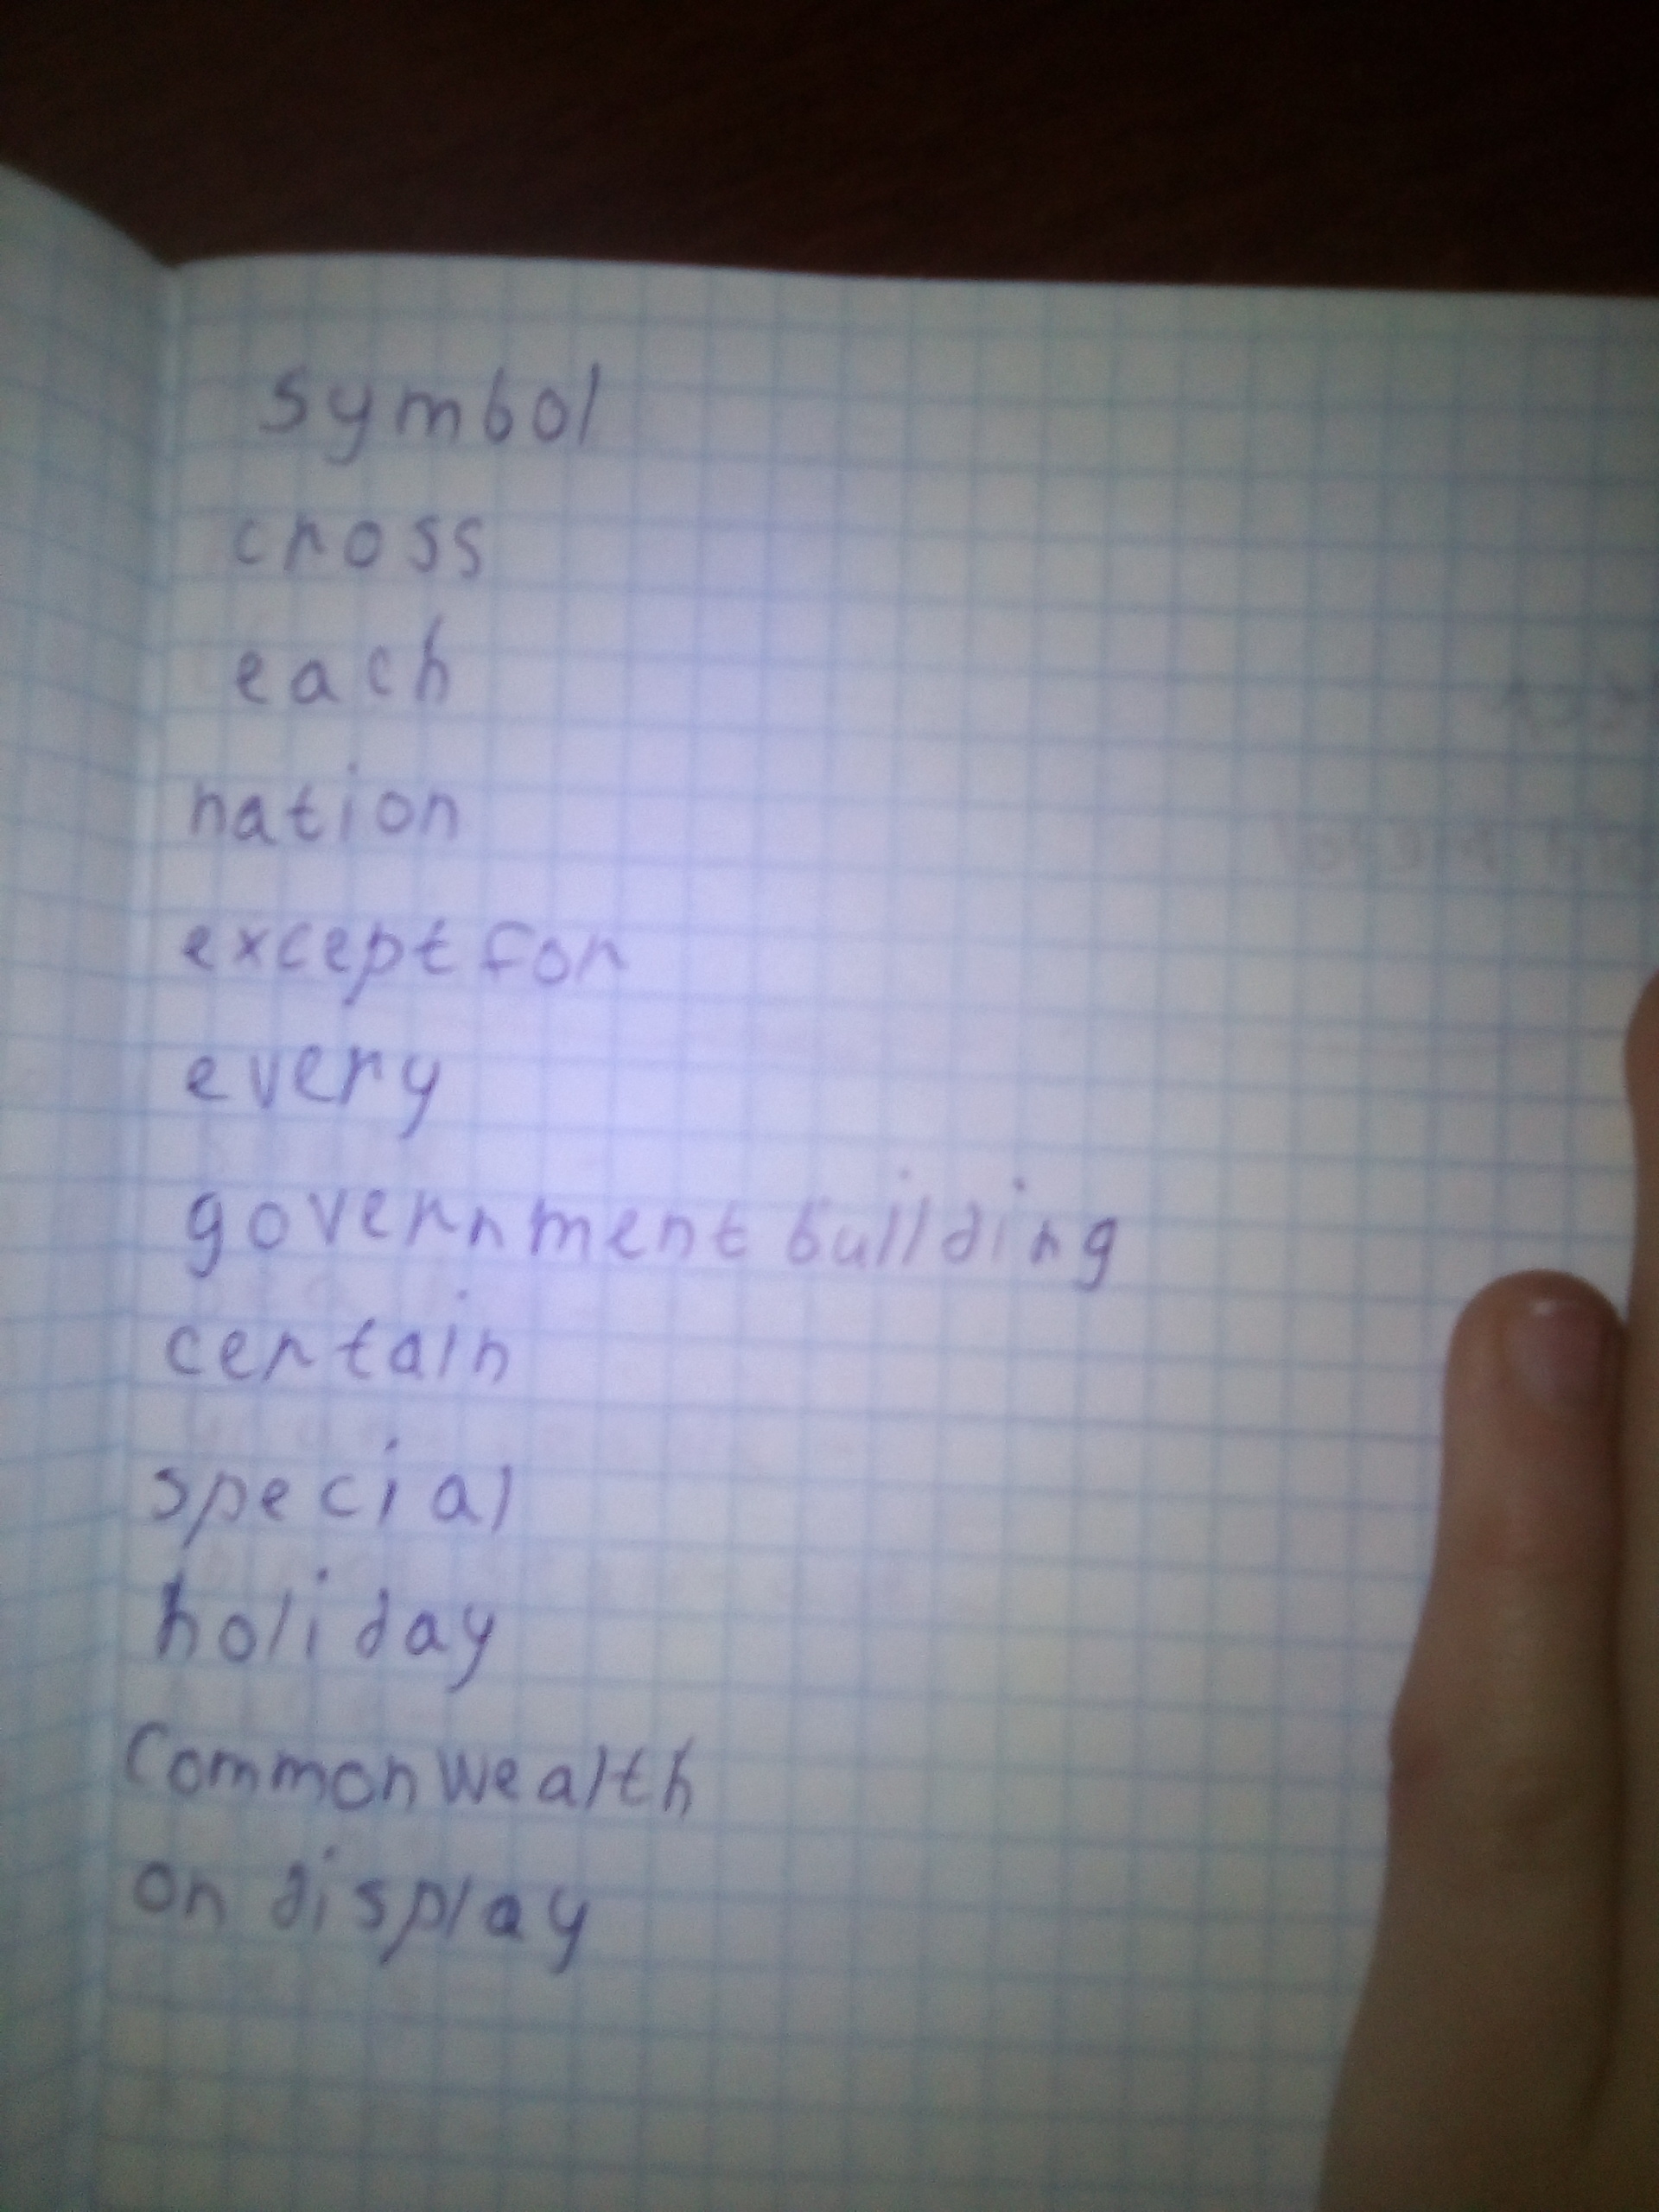 symbol
cross
each
nation
except for
every
government building
certain
special
holiday
Commonwealth
on display